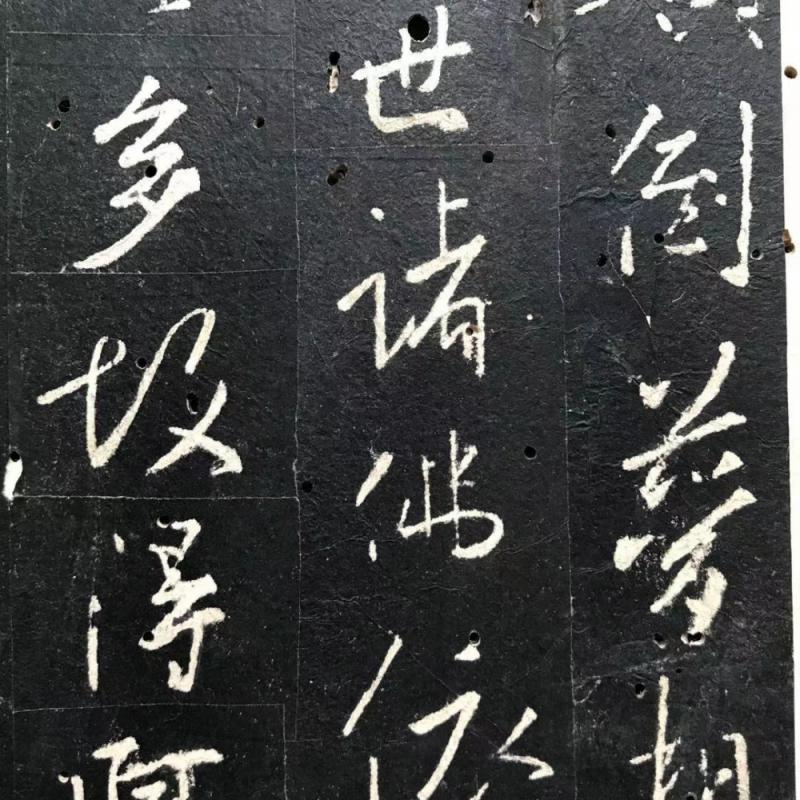 倒夢想
世諸佛依
多故得阿